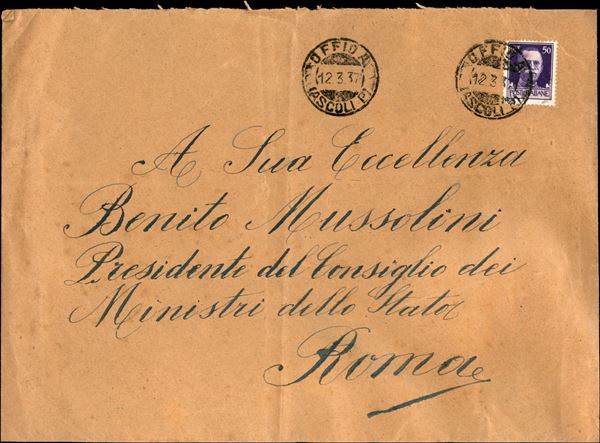 OFFIDA
12.3.37
(ASCOLI P.)
OFFIDA
12.3
(ASCOLI P.)
50
POSTE ITALIANE
A Sua Eccellenza
Benito Mussolini
Presidente del Consiglio dei
Ministri dello Stato
Roma